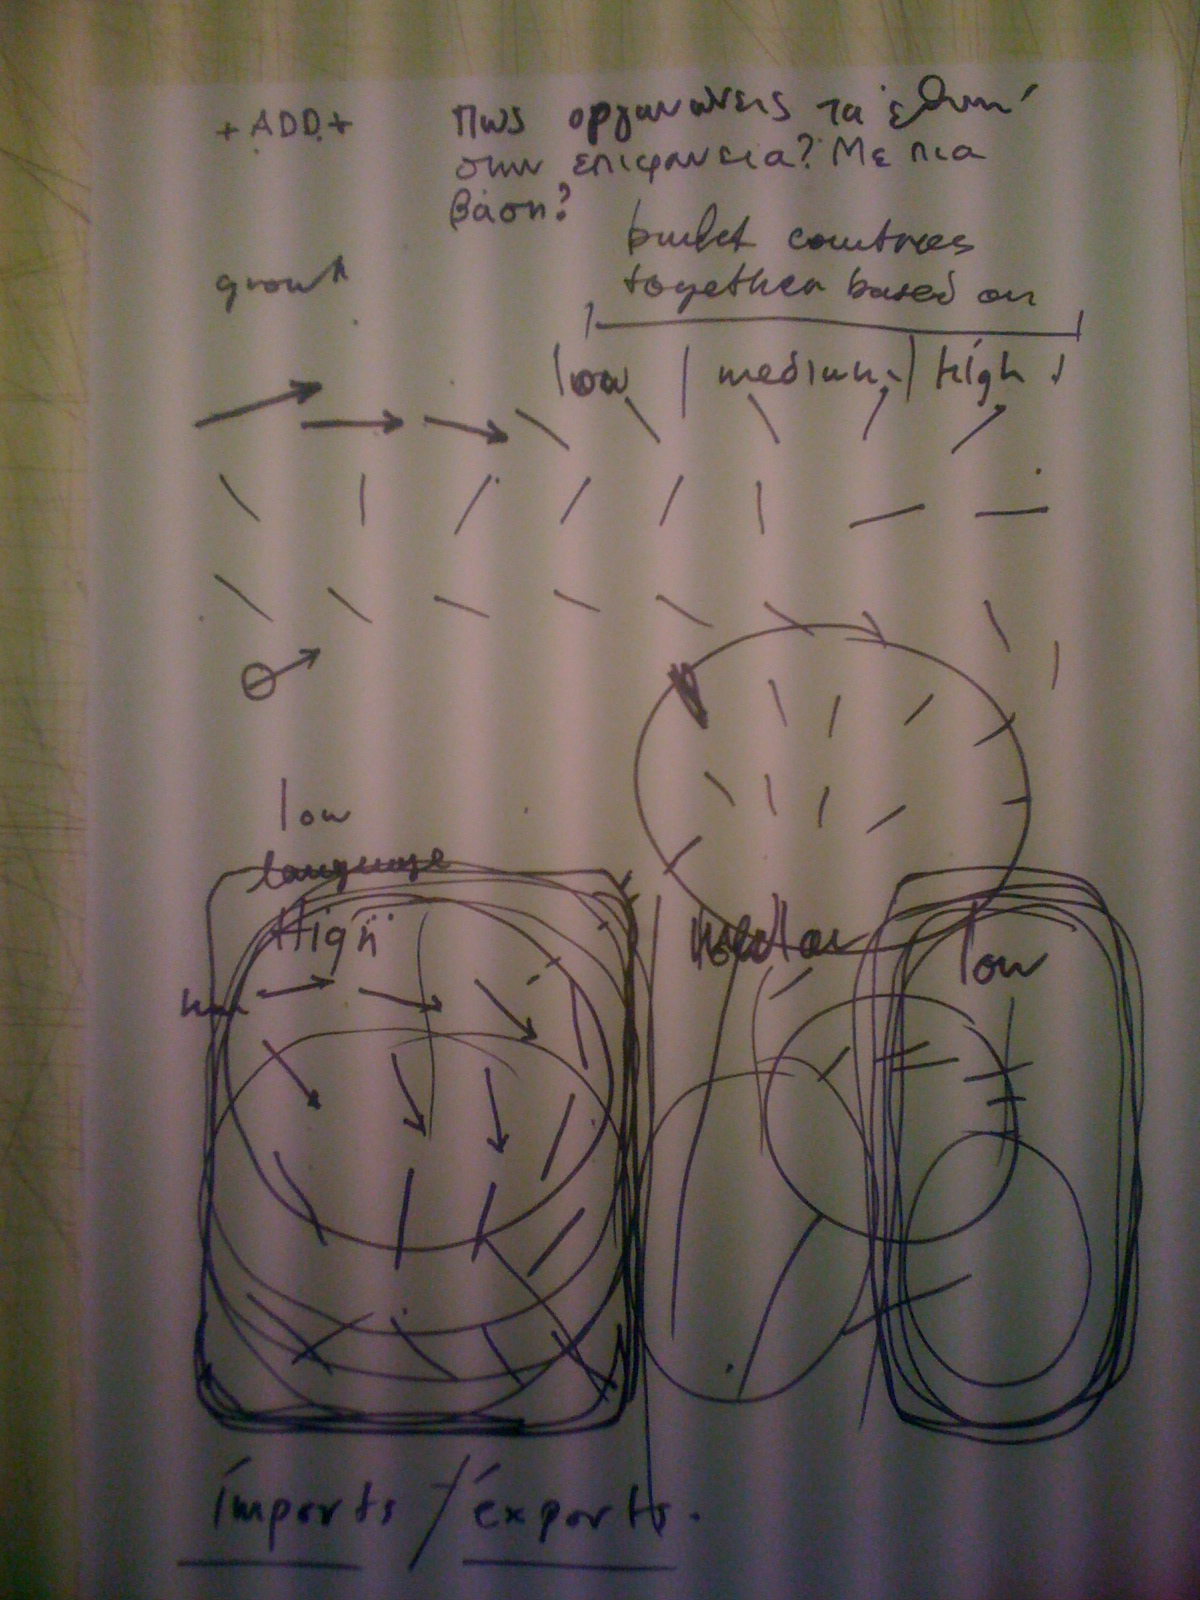 + ADD +
Πως οργανώνεις τα έθνη
στην επιφανεια? Με πια
βάση?
growth
countries
together based on
low | medium | high
low
language
High
low
imports / exports.